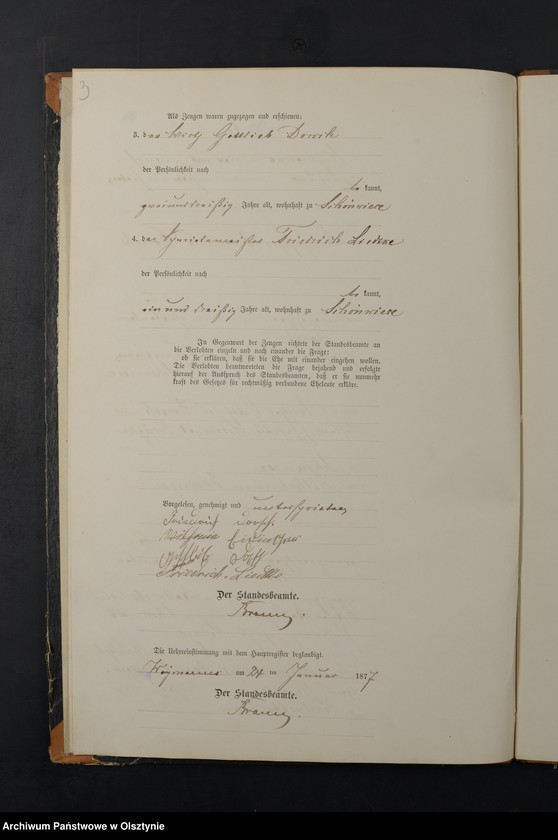 3
Als Zeugen waren zugezogen und erschienen:
3. der Wirth Gottlieb
der Persönlichkeit nach
be kannt,
zweiunddreißig Jahre alt, wohnhaft zu Schönwiese
4. der Friedrich Liedtke
der Persönlichkeit nach
be kannt,
einunddreißig Jahre alt, wohnhaft zu Schönwiese
In Gegenwart der Zeugen richtete der Standesbeamte an
die Verlobten einzeln und nach einander die Frage:
ob sie erklären, daß sie die Ehe mit einander eingehen wollen.
Die Verlobten beantworteten die Frage bejahend und erfolgte
hierauf der Ausspruch des Standesbeamten, daß er sie nunmehr
kraft des Gesetzes für rechtmäßig verbundene Eheleute erkläre.
Vorgelesen, genehmigt und unterschrieben
Friedrich
Gottlieb
Friedrich
Der Standesbeamte.
Die Uebereinstimmung mit dem Hauptregister beglaubigt.
am 24 ten Januar 1877
Der Standesbeamte.
Archiwum Państwowe w Olsztynie